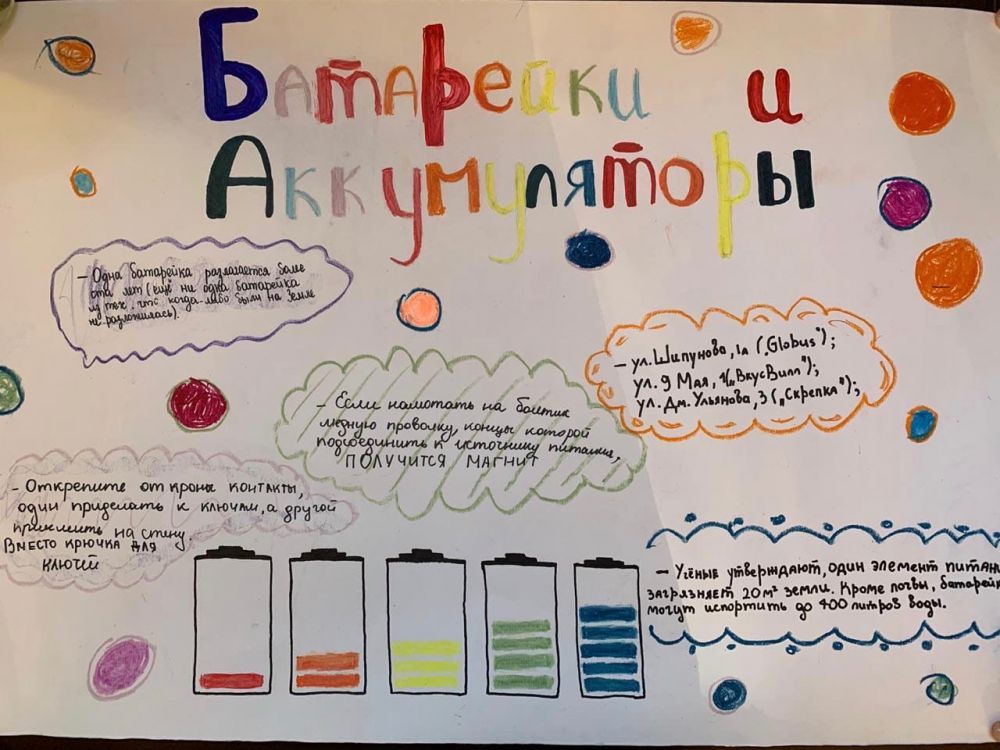 Батарейки и
Аккумуляторы
– Одна батарейка разлагается более
ста лет (ещё ни одна батарейка
из тех, что когда-либо были на Земле
не разложилась).
– ул. Шипунова, 1а („Globus");
ул. 9 Мая, 4(„ВкусВилл");
ул. Дм. Ульянова, 3 („Скрепка");
– Если намотать на болтик
медную проволку, концы которой
подсоединить к источнику питания,
ПОЛУЧИТСЯ МАГНИТ
– Открепите от кроны контакты,
один приделать к ключам, а другой
приклеить на стену.
Вместо крючка для
ключей
– Учёные утверждают, один элемент питан
загрязняет 20м² земли. Кроме почвы, батарей
могут испортить до 400 литров воды.